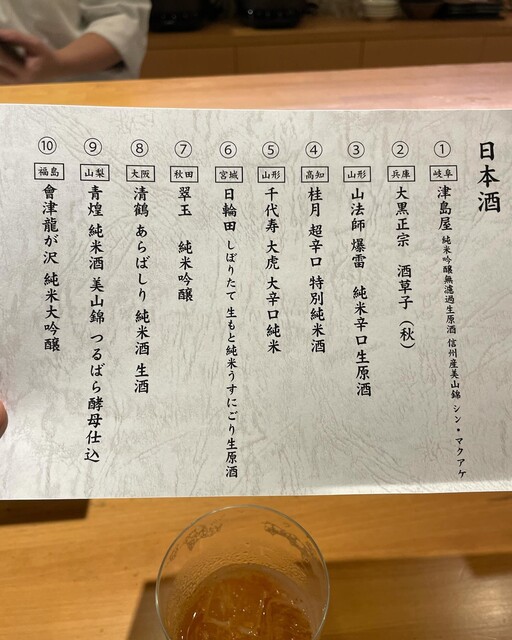 日本酒
① 岐阜 津島屋 純米吟醸無濾過生原酒 信州産美山錦 シン・マクアケ
② 兵庫 大黒正宗 酒草子（秋）
③ 山形 山法師 爆雷 純米辛口生原酒
④ 高知 桂月 超辛口 特別純米酒
⑤ 山形 千代寿 大虎 大辛口純米
⑥ 宮城 日輪田 しぼりたて 生もと純米うすにごり生原酒
⑦ 秋田 翠玉 純米吟醸
⑧ 大阪 清鶴 あらばしり 純米酒 生酒
⑨ 山梨 青煌 純米酒 美山錦 つるばら酵母仕込
⑩ 福島 會津龍が沢 純米大吟醸